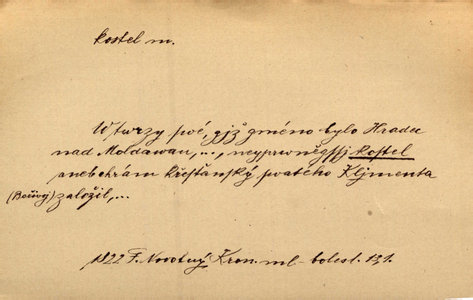 kostel m.
W twrzy své, gjž gméno bylo Hradec
nad Moldawau, .., neyprwněgssj kostel
aneb chrám křesťanský swatého Klimenta
(Bořivoj) založil,...
1822 F. Novotný Kron. ml- bolesl. 131.